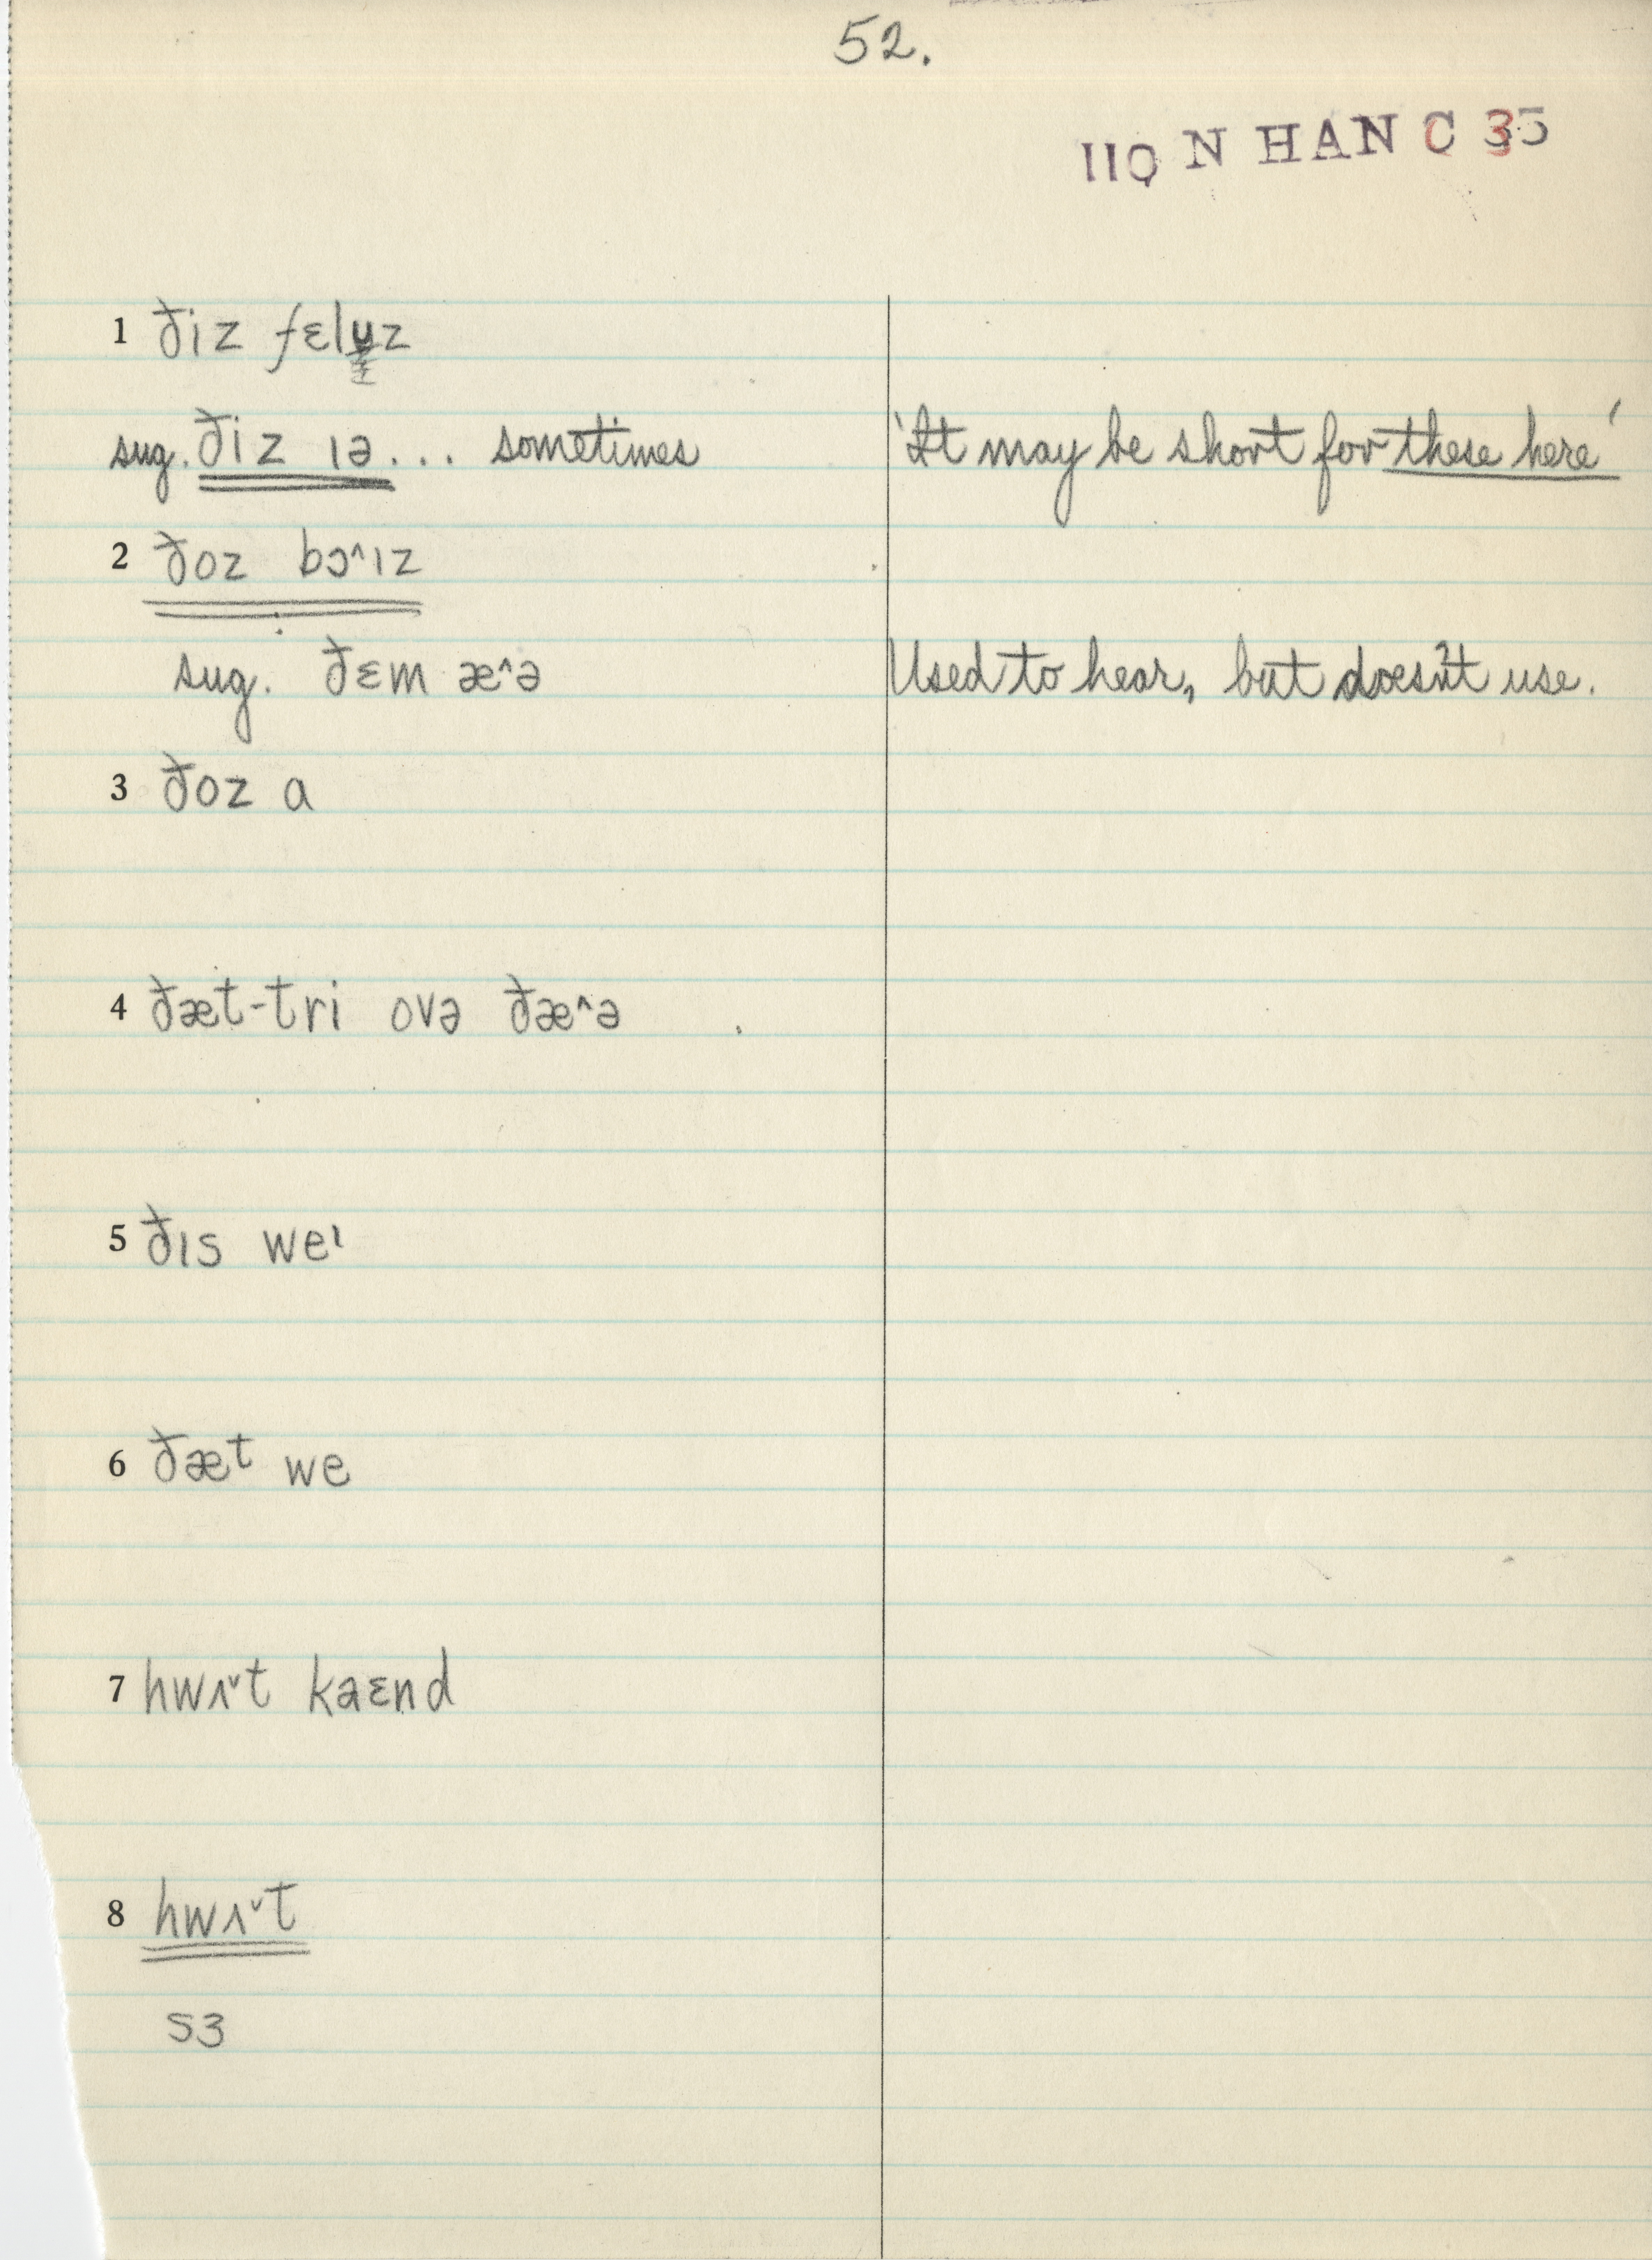 52.
110 N HAN C 35
1 ðiz fɛlʉz
sug. ðiz ɪə... sometimes 'It may be short for these here'
2 ðoz bɔ^ɪz
sug. ðɛm æ^ə Used to hear, but doesn't use.
3 ðoz a
4 ðæt-tri ovə ðæ^ə
5 ðɪs weᶦ
6 ðæᵗ we
7 hwʌ˅t kaɛnd
8 hwʌ˅t
sɜ